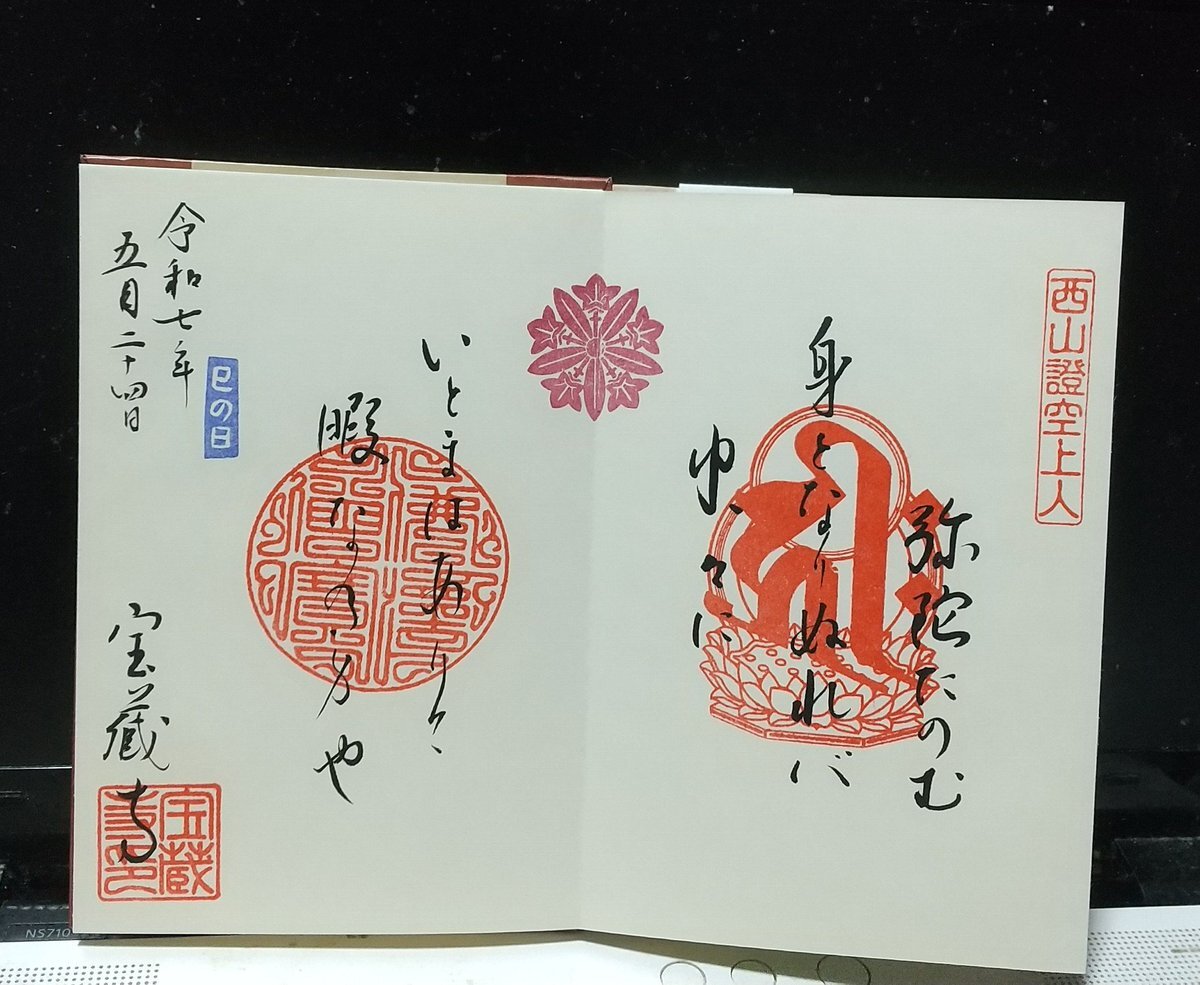 西山證空上人
弥陀たのむ
身となりぬれバ
中々に
いとまはありて
暇なの身や
巳の日
令和七年
五月二十四日
宝蔵寺
宝蔵寺印
NS710